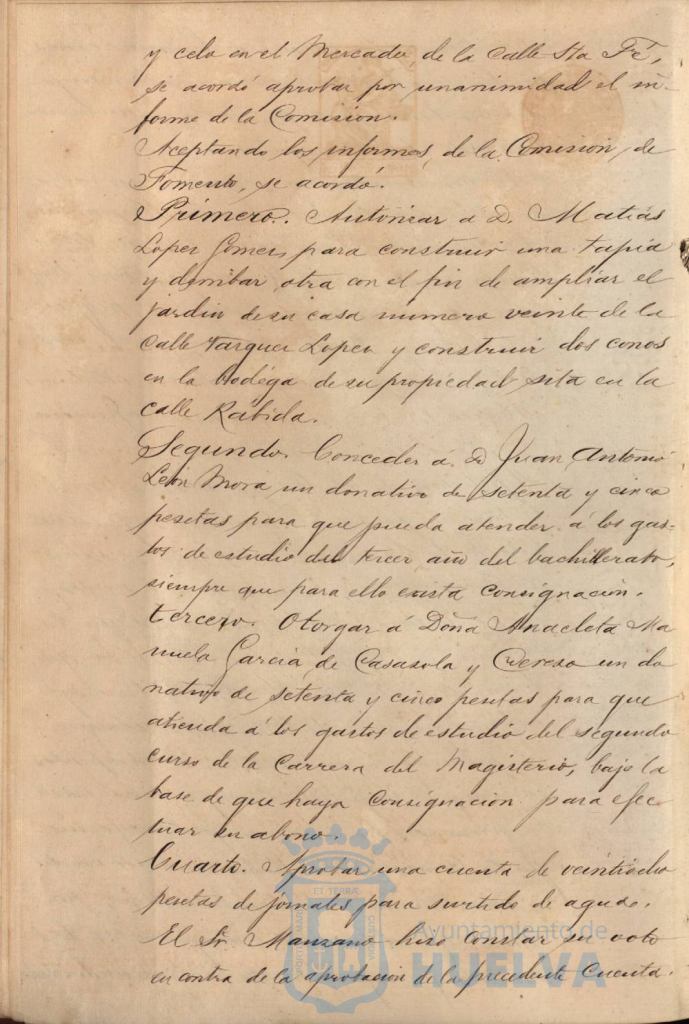 y celo en el Mercado, de la calle Sta Fé,
se acordó aprobar por unanimidad el in-
forme de la Comision.
Aceptando los informes, de la Comisión, de
Fomento, se acordó.
Primero. Autorizar á D. Matias
Lopez Gimez, para construir una tapia
y derribar otra con el fin de ampliar el
jardin de su casa numero veinte de la
calle Lopez y construir dos conos
en la bodega de su propiedad sita en la
calle Rábida.
Segundo. Conceder á D Juan Antonio
León Mora un donativo de setenta y cinco
pesetas para que pueda atender á los gas-
tos de estudio del tercer año del bachillerato,
siempre que para ello exista consignación.
tercero. Otorgar á Doña Anacleta Ma
nuela Garcia de Casasola y Cerezo un do
nativo de setenta y cinco pesetas para que
atienda á los gastos de estudio del segundo
curso de la Carrera del Magisterio, bajo la
base de que haya consignación para efec
tuar su abono.
Cuarto. Aprobar una cuenta de veintiocho
pesetas de jornales para surtido de aguas.
El Sr Manzano hizo constar su voto
en contra de la aprobacion de la precedente Cuenta.
Ayuntamiento de
HUELVA